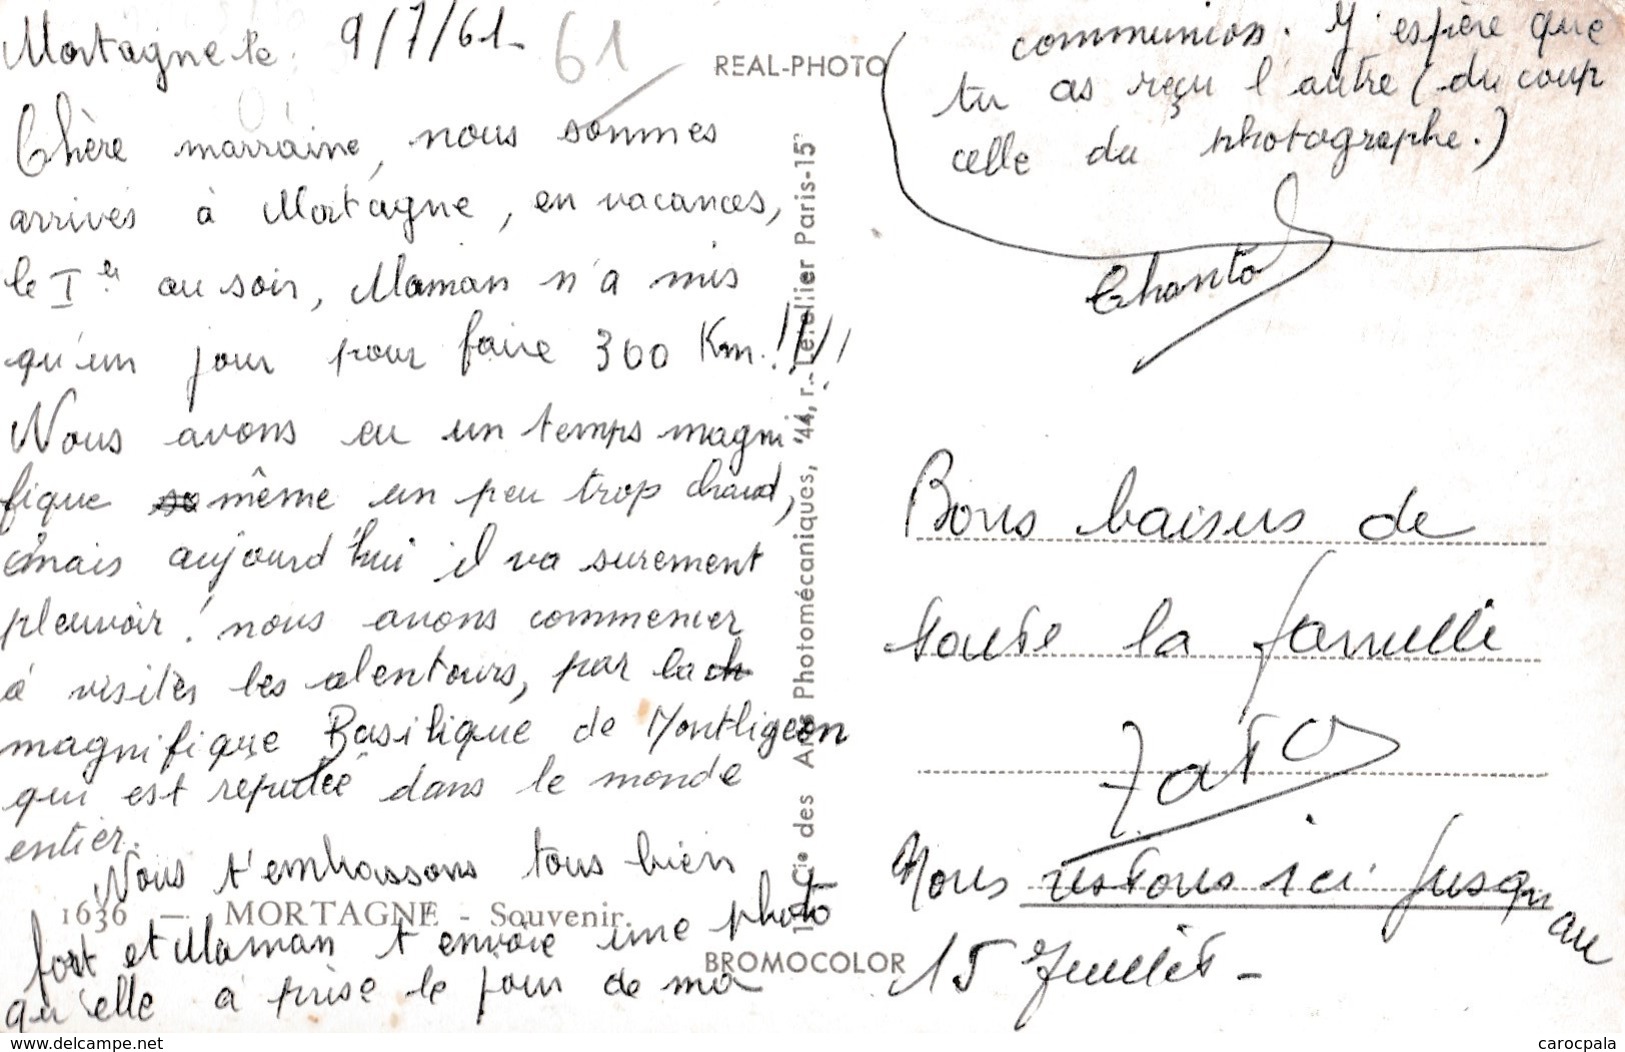 Mortagne le 9/7/61-
61
Chère marraine, nous sommes
arrivés à Mortagne, en vacances,
le Ier au soir, Maman n'a mis
qu'un jour pour faire 300 Km.!!!!!
Nous avons eu un temps magni
fique même un peu trop chaud,
mais aujourd'hui il va surement
pleuvoir! nous avons commencer
à visiter les alentours, par la
magnifique Basilique de Montligeon
qui est réputée dans le monde
entier.
Nous t'embrassons tous bien
fort et Maman t'envoie une photo
qu'elle a prise le jour de ma
communion. J'espère que
tu as reçu l'autre (du coup
celle du photographe.)
Chanto
Bons baisers de
toute la famille
Tato
Nous restons ici jusqu'au
15 Juillet-
REAL-PHOTO
Cie des Arts Photomécaniques, 44, r. Letellier Paris-15e
1636 — MORTAGNE - Souvenir.
BROMOCOLOR
www.delcampe.net
carocpala